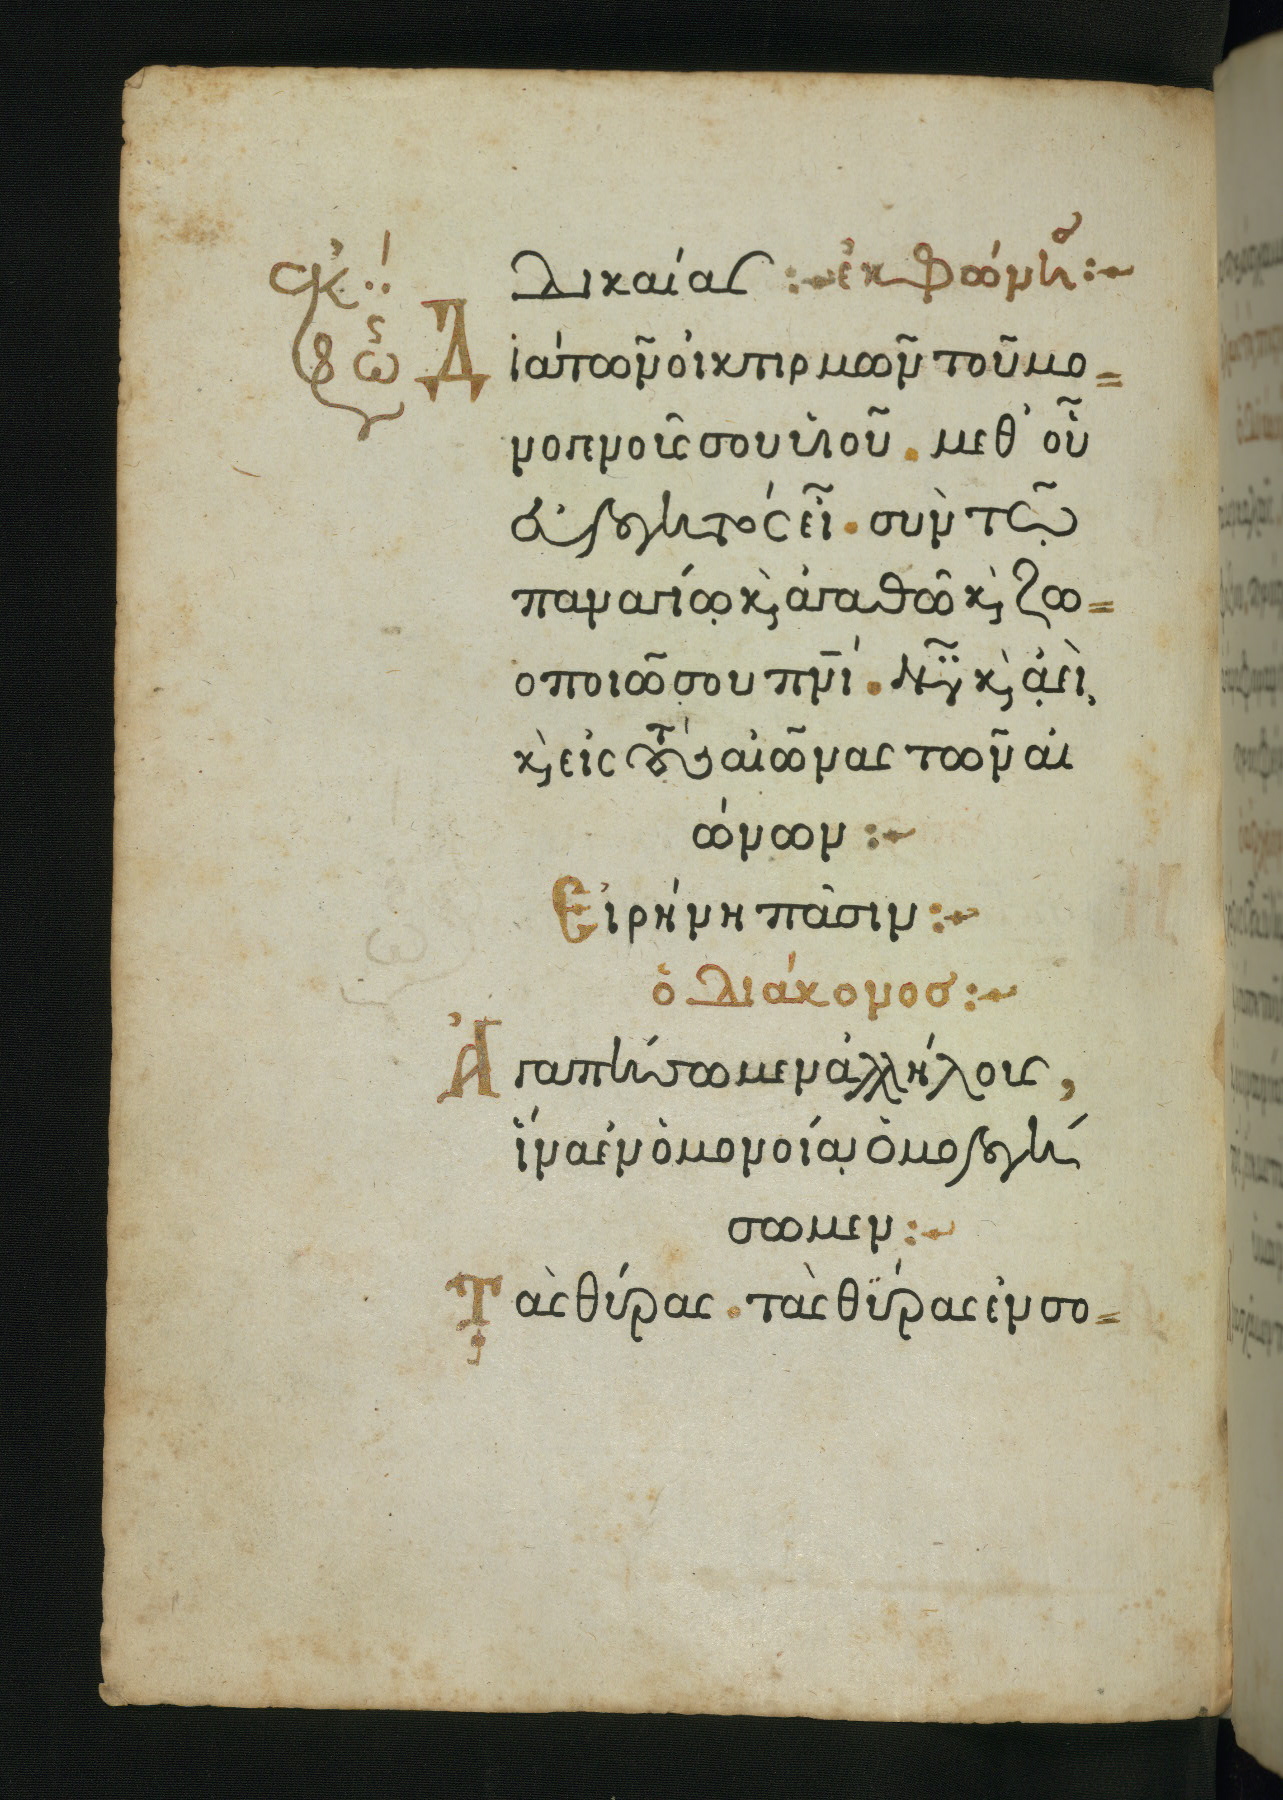 δικαίας :~ ἐκφώνη :~
Διὰ τῶν οἰκτιρμῶν τοῦ μο=
νογενοῦς σου υἱοῦ. μεθ' οὗ
εὐλογητός εἶ. σὺν τῷ
παναγίῳ κ, ἀγαθῷ κ, ζω=
οποιῷ σου πνι. νῦν κ, ἀεὶ,
κ, εἰς τοὺς αἰῶνας τῶν αἰ
ώνων :~
Εἰρήνη πᾶσιν :~
ὁ διάκονος :~
Ἀγαπήσωμεν ἀλλήλους,
ἵνα ἐν ὁμονοίᾳ ὁμολογή
σωμεν :~
Τὰς θύρας. τὰς θύρας ἐν σο=